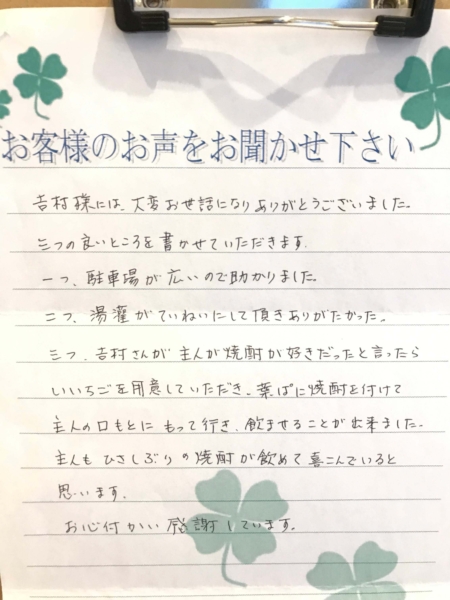 お客様のお声をお聞かせ下さい
吉村様には、大変お世話になりありがとうございました。
三つの良いところを書かせていただきます。
一つ、駐車場が広いので助かりました。
二つ、湯灌がていねいにして頂きありがたかった。
三つ、吉村さんが主人が焼酎が好きだったと言ったら
いいちごを用意していただき、葉ぱに焼酎を付けて
主人の口もとにもって行き、飲ませることが出来ました。
主人もひさしぶりの焼酎が飲めて喜こんでいると
思います。
お心付かい感謝しています。